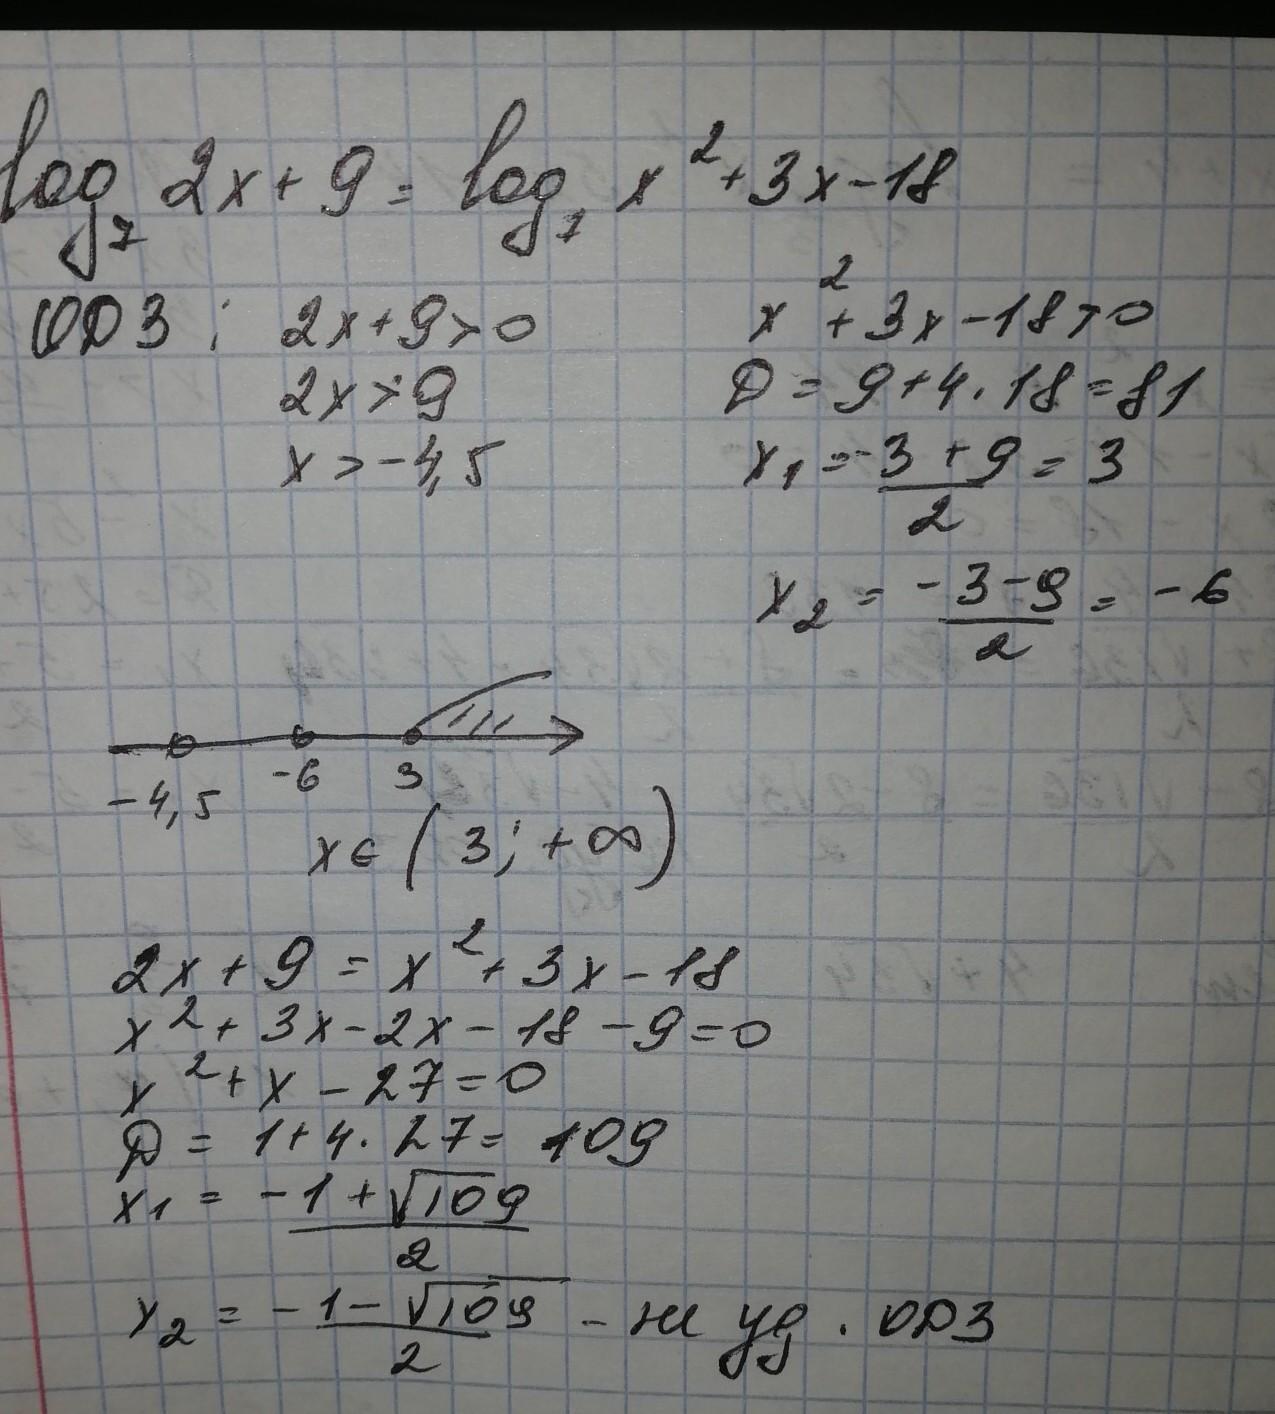 log₇ 2x + 9 = log₇ x² + 3x - 18
ОДЗ: 2x + 9 > 0
2x > 9
x > -4,5
x² + 3x - 18 > 0
D = 9 + 4 · 18 = 81
x₁ = (-3 + 9)/2 = 3
x₂ = (-3 - 9)/2 = -6
-4,5 -6 3
x ∈ (3; +∞)
2x + 9 = x² + 3x - 18
x² + 3x - 2x - 18 - 9 = 0
x² + x - 27 = 0
D = 1 + 4 · 27 = 109
x₁ = (-1 + √109)/2
x₂ = (-1 - √109)/2 - не уд. ОДЗ